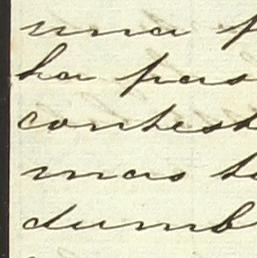 una p
ha pas
contest
mas t
dumb